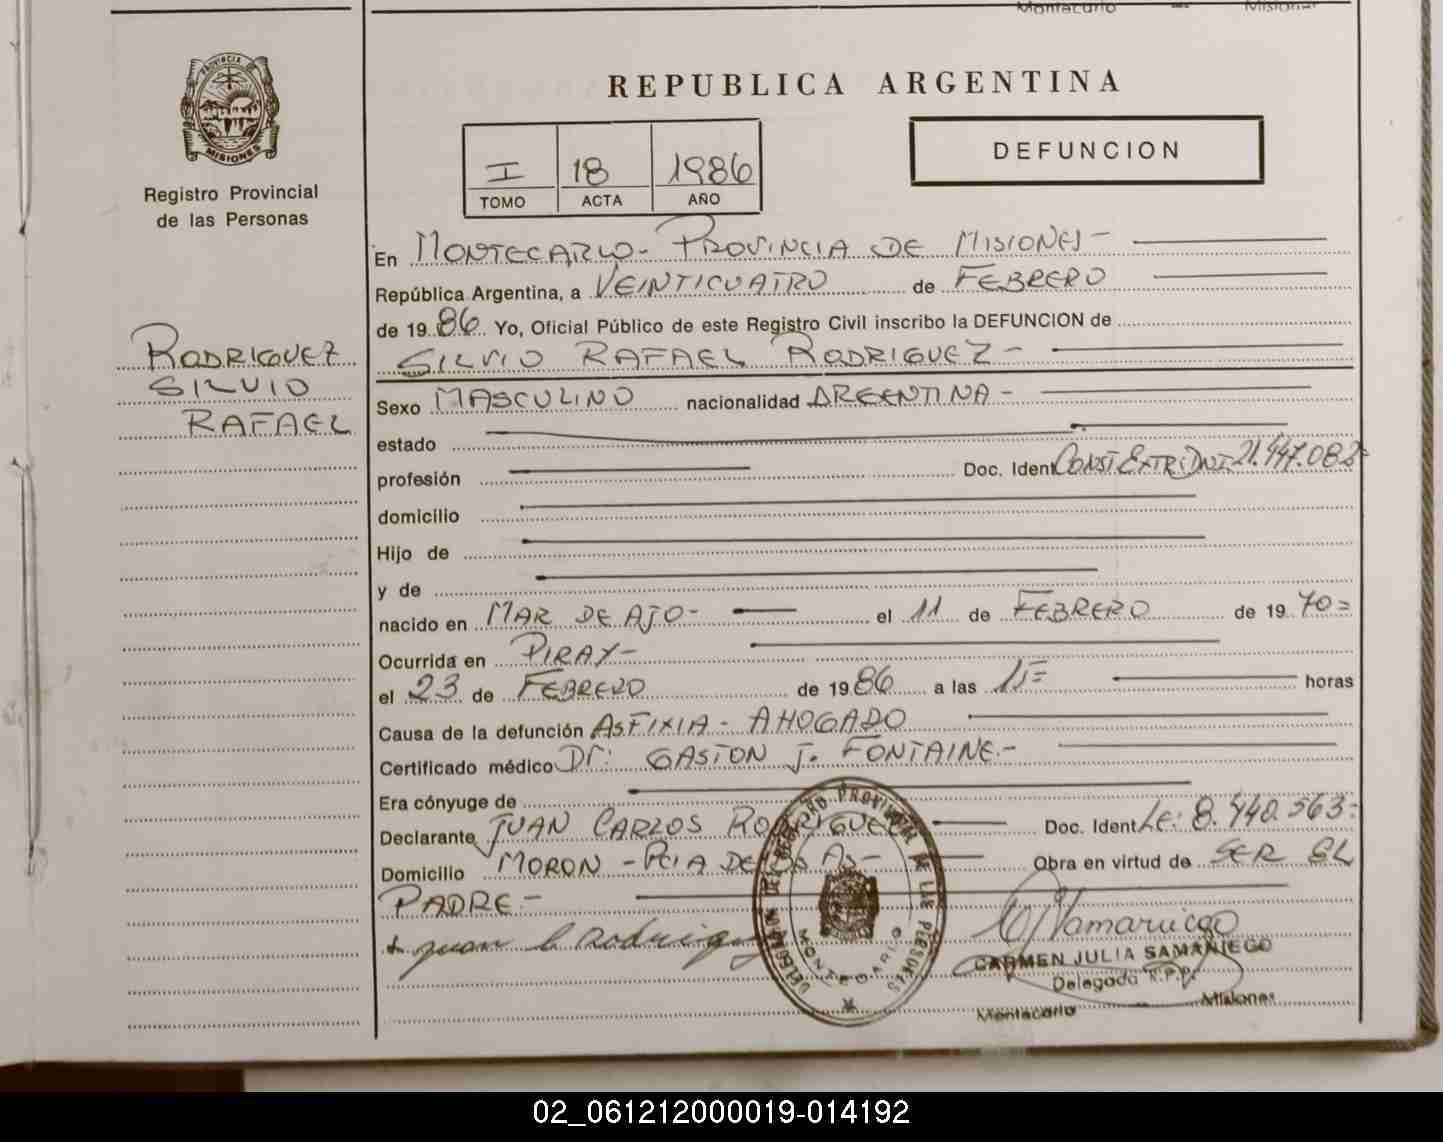 Montecarlo Misiones
PROVINCIA
MISIONES
Registro Provincial
de las Personas
REPUBLICA ARGENTINA
I 18 1986
TOMO ACTA AÑO
DEFUNCION
En MONTECARLO- PROVINCIA DE MISIONES-
República Argentina, a VEINTICUATRO de FEBRERO
de 1986 Yo, Oficial Público de este Registro Civil inscribo la DEFUNCION de
SILVIO RAFAEL RODRIGUEZ-
RODRIGUEZ
SILVIO
RAFAEL
Sexo MASCULINO nacionalidad ARGENTINA-
estado
profesión Doc. Ident CONST.EXTR.DNI 21.447.082-
domicilio
Hijo de
y de
nacido en MAR DE AJO- el 11 de FEBRERO de 1970=
Ocurrida en PIRAY-
el 23 de FEBRERO de 1986 a las 15= horas
Causa de la defunción ASFIXIA- AHOGADO
Certificado médico Dr: GASTON J. FONTAINE.-
Era cónyuge de
Declarante JUAN CARLOS RODRIGUEZ Doc. Ident LE: 8.440.563-
Domicilio MORON - PCIA DE BS AS- Obra en virtud de SER EL
PADRE.-
+ juan c Rodriguez
DELEGACION DEL REGISTRO PROVINCIAL DE LAS PERSONAS
MONTECARLO
CJSamaniego
CARMEN JULIA SAMANIEGO
Delegada R.P.P.
Montecarlo Misiones
02_061212000019-014192